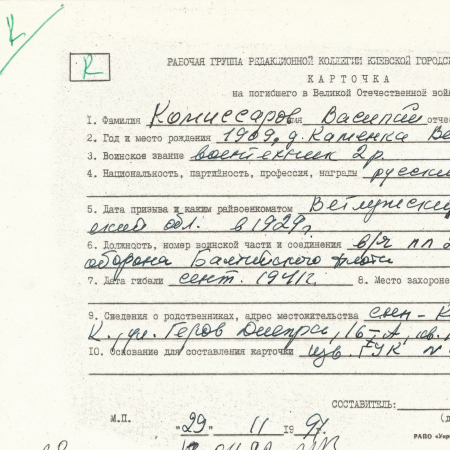 К
РАБОЧАЯ ГРУППА РЕДАКЦИОННОЙ КОЛЛЕГИИ КИЕВСКОЙ ГОРОДС
КАРТОЧКА
на погибшего в Великой Отечественной вой
1. Фамилия Комиссаров имя Василий отчес
2. Год и место рождения 1909, д. Каменка Ве
3. Воинское звание воентехник 2 р.
4. Национальность, партийность, профессия, награды русский
5. Дата призыва и каким райвоенкоматом Ветлужски
обл. в 1929 г.
6. Должность, номер воинской части и соединения в/ч пп
оборона Балтийского флота
7. Дата гибели сент. 1941 г. 8. Место захороне
9. Сведения о родственниках, адрес местожительства сын - К
К., ул. Героев Днепра, 16-А, кв.
10. Основание для составления карточки изв. ГУК
СОСТАВИТЕЛЬ:
М.П. "29" 11 1997.
РАПО «Укр